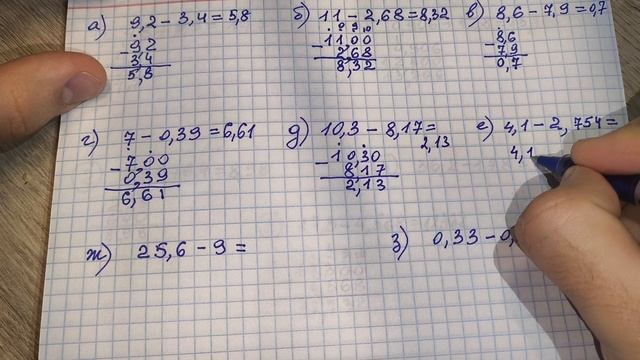 а) 9,2 - 3,4 = 5,8
9,2
- 3,4
5,8
б) 11 - 2,68 = 8,32
9 9 10
11,00
- 2,68
8,32
в) 8,6 - 7,9 = 0,7
8,6
- 7,9
0,7
г) 7 - 0,39 = 6,61
7,00
- 0,39
6,61
д) 10,3 - 8,17 =
2,13
10,30
- 8,17
2,13
е) 4,1 - 2,754 =
4,1
ж) 25,6 - 9 =
з) 0,33 - 0,